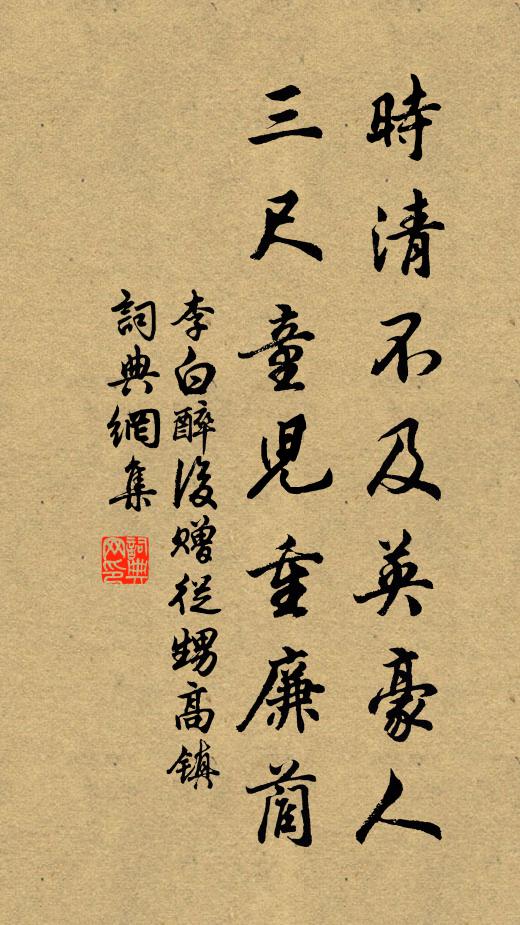 時清不及英豪人
三尺童兒重廉藺
李白醉後贈從甥高鎮
詞典網集
詞典
网印